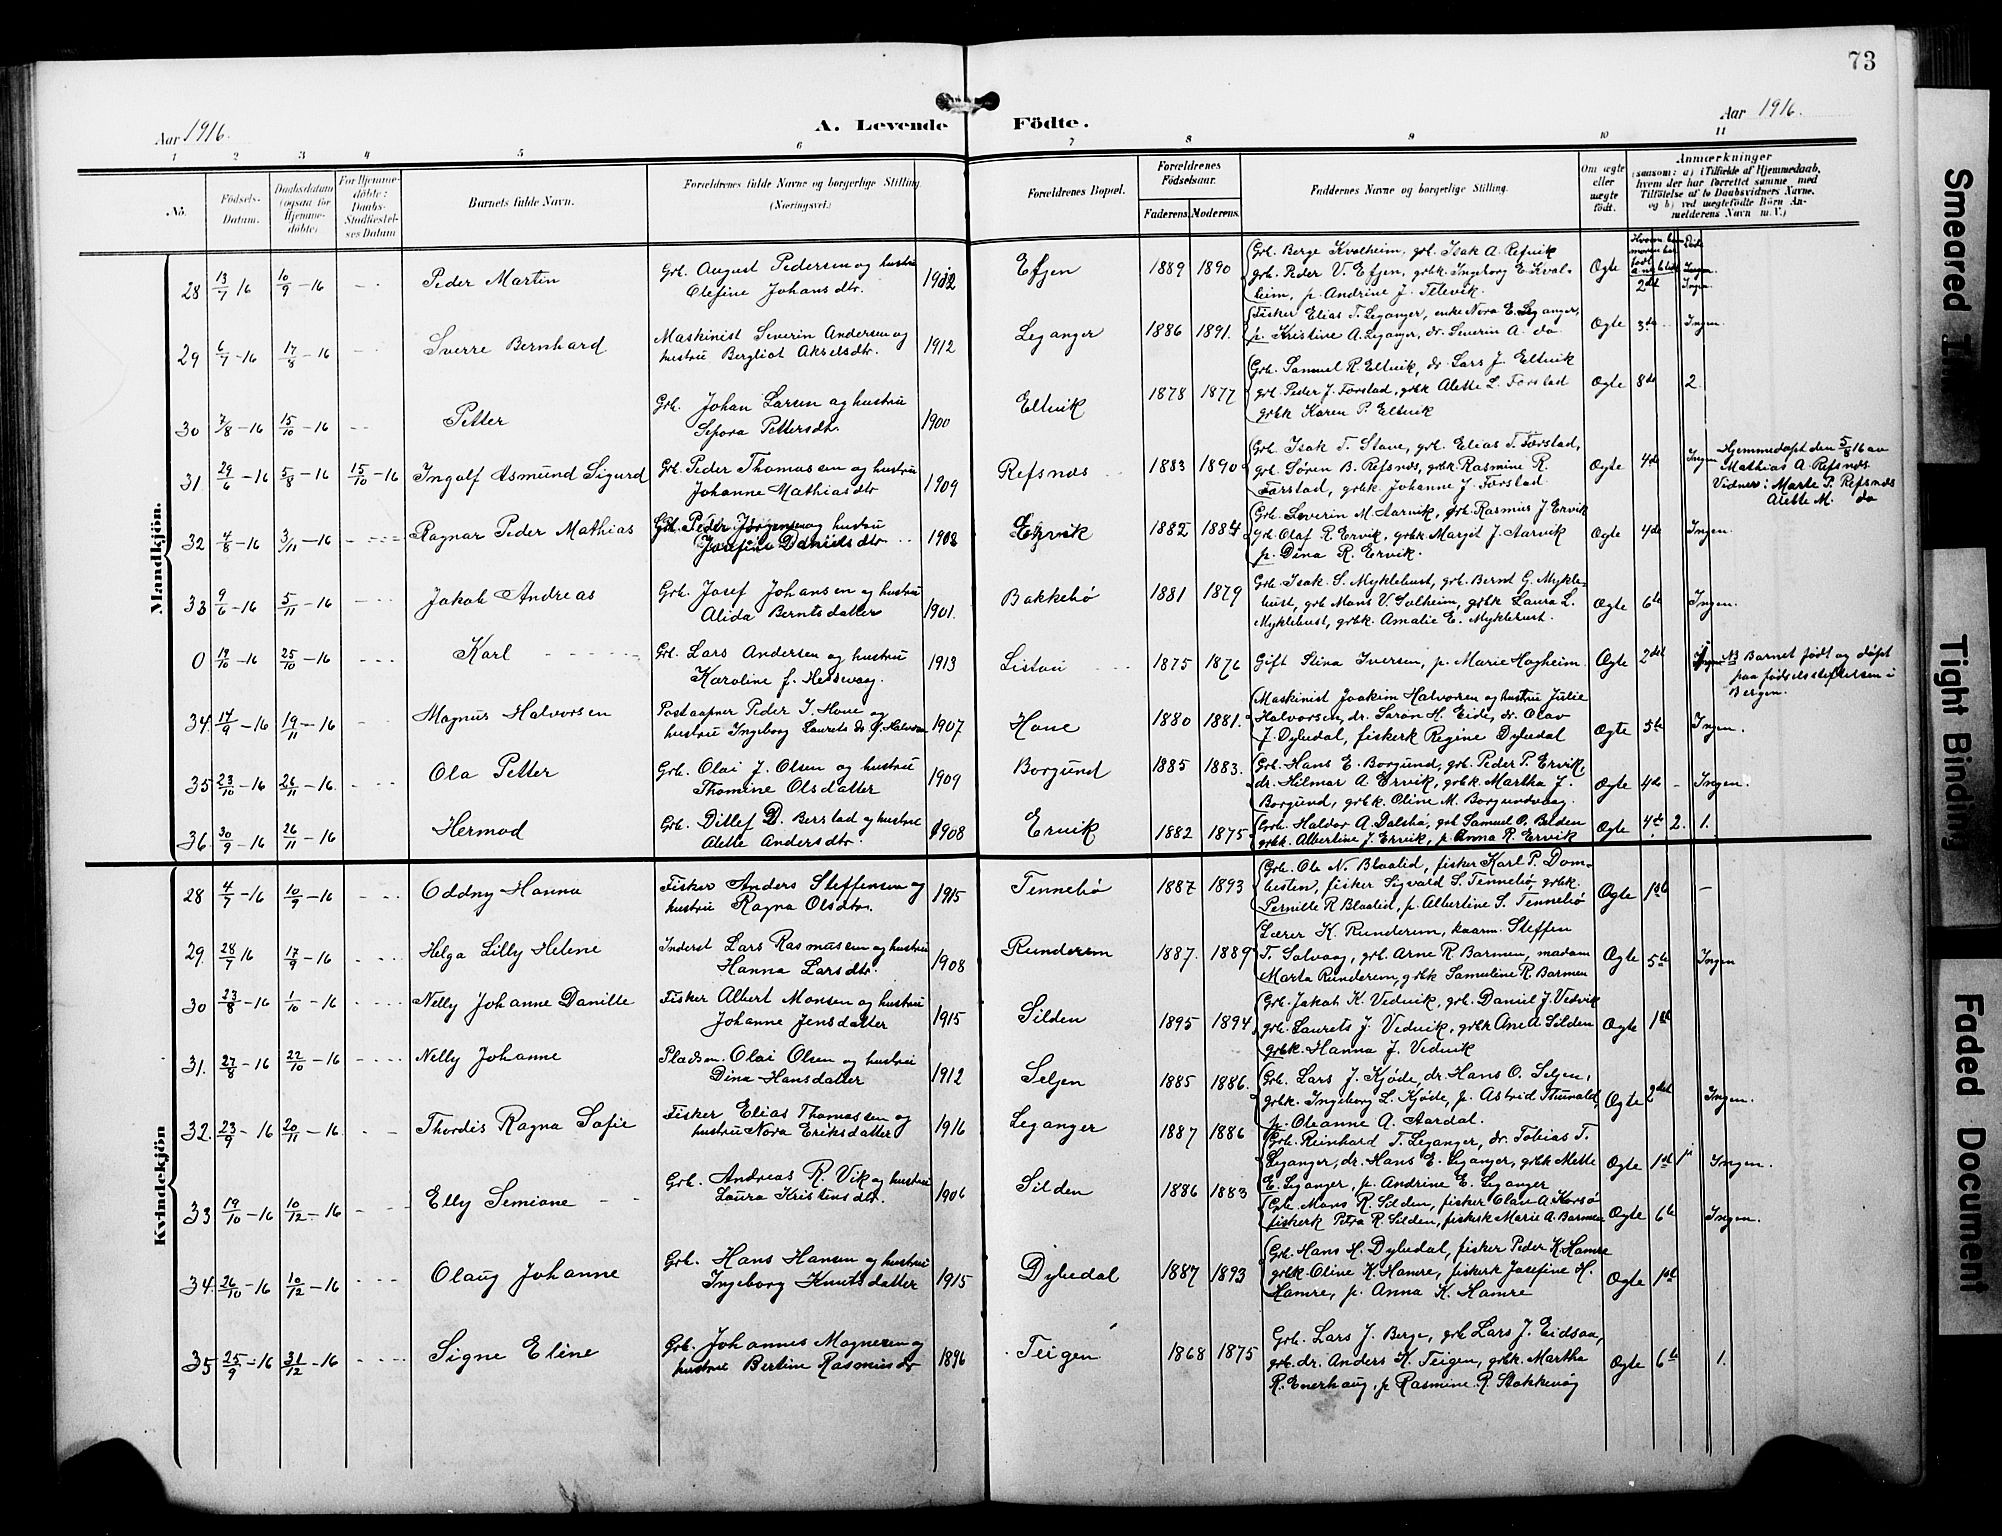 73
Aar 1916.
A. Levende Födte.
Aar 1916.
1 2 3 4 5 6 7 8 9 10 11
No.
Födsels-Datum.
Daabsdatum (ogsaa for Hjemmedöbte)
For Hjemmedöbte: Daabs-Stadfæstelses Datum
Barnets fulde Navn.
Forældrenes fulde Navne og borgerlige Stilling. (Næringsvei.)
Forældrenes Bopæl.
Forældrenes Födselsaar.
Faderens. Moderens.
Faddernes Navne og borgerlige Stilling.
Om ægte eller uægte födt.
Anmærkninger
(saasom: a) i Tilfælde af Hjemmedaab, hvem der har forrettet samme med Tilföielse af to Daabsvidners Navne, og b) ved uægtefödte Börn Anmelderens Navn m. V.)
Mandkjön.
28 13/7 16 10/9 - 16 Peder Martin Grb. August Pedersen og hustru Olefine Johansdtr. 1912 Efjen 1889 1890 Grb. Berge Kvalheim, grb. Isak A. Refvik grb. Peder V. Efjen, grbk. Ingeborg E. Kvalheim, p. Andrine J. Televik. Ogte 2det Ingen
29 6/7 - 16 17/8 - 16 Sverre Bernhard Maskinist Severin Andersen og hustru Bergliot Akselsdtr. 1912 Leganger 1886 1891. Fisker Elias T. Leganger, enke Nora E. Leganger, p. Kristine A. Leganger, dr. Severin A. do Ogte 3de Ingen.
30 7/8 - 16 15/10 - 16 Petter Grb. Johan Larsen og hustru Sepora Pettersdtr. 1900 Eltvik 1878 1877 Grb. Samuel R. Eltvik, dr. Lars J. Eltvik grb. Peder J. Forstad, grbk Alette L. Forstad grbk Karen P. Eltvik Ogte 8de 2.
31 29/6 - 16 5/8 - 16 15/10 - 16 Ingolf Asmund Sigurd Grb. Peder Thomassen og hustru Johanne Mathiasdtr 1909 Refsnæs 1883 1890 Grb. Isak T. Stave, grb. Elias T. Færstad, grb. Søren B. Refsnæs, grbk Rasmine R. Færstad, grbk. Johanne J. Forstad Ogte 4de Ingen Hjemmedøpt den 5/8 16 av Mathias A Refsnæs Vidner: Marte P. Refsnæs Alette M. do
32 4/8 - 16 3/11 - 16 Ragnar Peder Mathias Grb. Peder Jørgensen og hustru Josefine Danielsdtr. 1908 Ervik 1882 1884 Grb. Severin M. Aarvik, grb. Rasmus J Ervik grb Olaf R Ervik, grbk Margit J. Aarvik p. Dina R. Ervik. Ogte 4de Ingen.
33 9/6 - 16 5/11 - 16 Jakob Andreas Grb. Josef Johansen og hustru Alida Berntsdatter 1901. Bakkebø 1881 1879 Grb. Isak S. Myklebust, grb. Bernt G. Myklebust, grb Mons V. Solheim, grbk Laura L. Myklebust, grbk. Amalie E. Myklebust. Ogte 6te Ingen.
0 19/10 - 16 25/10 - 16 Karl Grb. Lars Andersen og hustru Karoline f. Hessevaag. 1913 Listau 1875 1876 Gift Stina Iversen, p. Marie Hagheim. Ogte 2det Ingen NB Barnet født og døpt paa fødselsstiftelsen i Bergen.
34. 14/9 - 16 19/11 - 16 Magnus Halvorsen Postaapner Peder I. Hove og hustru Ingeborg Laurets dr. f. Halvorsen 1907 Hove 1880 1881. Maskinist Joakim Halvorsen og hustru Julie Halvorsen, dr. Søron H. Eide, dr. Olav J. Dybedal, fiskerk Regine Dybedal Ogte 5te Ingen.
35 23/10 - 16 26/11 - 16. Ola Petter Grb. Olai J. Olsen og hustru Thomine Olsdatter 1909 Borgund 1885 1883. Grb. Hans E. Borgund, grb. Peder P. Ervik, dr. Hilmar A Ervik, grbk. Martha J. Borgund, grbk. Oline M. Borgundvaag. Ogte 4de - Ingen.
36. 30/9 - 16 26/11 - 16 Hermod Grb. Ditlef D. Berstad og hustru Alette Andersdtr. 1908 Ervik 1882 1875 Grb. Haldor A. Dalsbø, grb Samuel O. Belden grbk. Albertine J. Ervik, p. Anna R. Ervik Ogte 4de 2. 1.
Kvindekjön
28 4/7 - 16 10/9 - 16 Oddny Hanna Fisker Anders Steffensen og hustru Ragna Olsdtr. 1915 Tennebø 1887 1893 Grb. Ole N. Blaalid, fisker Karl P. Dombesten, fisker Sigvald S. Tennebø, grbk. Pernille R Blaalid, p. Albertine S. Tennebø Ogte 1ste -
29. 28/7 16 17/9 - 16 Helga Lilly Helene Inderst Lars Rasmussen og hustru Hanna Larsdtr. 1908 Runderem 1887. 1889 Lærer K. Runderem, kaarm. Steffen T. Salvaag, grb. Arne R Barmen, madam Marta Runderem, grbk Samuline R. Barmen Ogte 5te Ingen
30 23/8 - 16 1/10 - 16 Nelly Johanne Danille Fisker Albert Monsen og hustru Johanne Jensdatter 1915 Silden 1895 1894 Grb. Jakob K. Vedvik, grb. Daniel J. Vedvik grb. Laurets J. Vedvik, grbk Ane A. Silden grbk. Hanna J. Vedvik Ogte 1ste
31. 27/8 - 16 22/10 - 16 Nelly Johanne Pladsm. Olai Olsen og hustru Dina Hansdatter 1912 Seljen 1885 1886. Grb. Lars J. Kjøde, dr. Hans O. Seljen, grbk. Ingeborg L. Kjøde, p. Astrid Tunvald, p. Oleanne A. Aardal. Ogte 2det Ingen.
32. 23/9 - 16 20/11 - 16 Thordis Ragna Sofie Fisker Elias Thomassen og hustru Nora Eriksdatter 1916 Leganger 1887 1886 Grb. Reinhard T. Leganger, dr. Tobias T. Leganger, dr. Hans E. Leganger, grbk Mette E. Leganger, p. Andrine E. Leganger Ogte 1ste 1 Ingen.
33 19/10 - 16 10/12 - 16 Elly Semione Grb. Andreas R. Vik og hustru Laura Kristensdtr. 1906 Silden 1886 1883 Grb. Mons R. Silden, fisker Olav A Korsø fiskerk Petra R. Silden, fiskerk Marie A. Barmen Ogte 6te Ingen.
34. 26/10 - 16 10/12 - 16 Olaug Johanne Grb. Hans Hansen og hustru Ingeborg Knutsdatter 1915 Dybedal 1887 1893 Grb. Hans H. Dybedal, fisker Peder K. Hamre grbk. Oline K. Hamre, fiskerk Josefine H. Hamre, p. Anna K. Hamre Ogte 1ste
35 25/9 - 16 31/12 - 16 Signe Eline Grb. Johannes Magnesen og hustru Bertine Rasmusdtr 1896 Teigen 1868 1875 Grb. Lars J. Berge, grb Lars J. Eidsaa, grb. dr. Anders K. Teigen, grbk. Martha R. Enerhaug, p Rasmine R. Stokkevåg Ogte 6te 1.
Smeared
Tight Binding
Faded Document